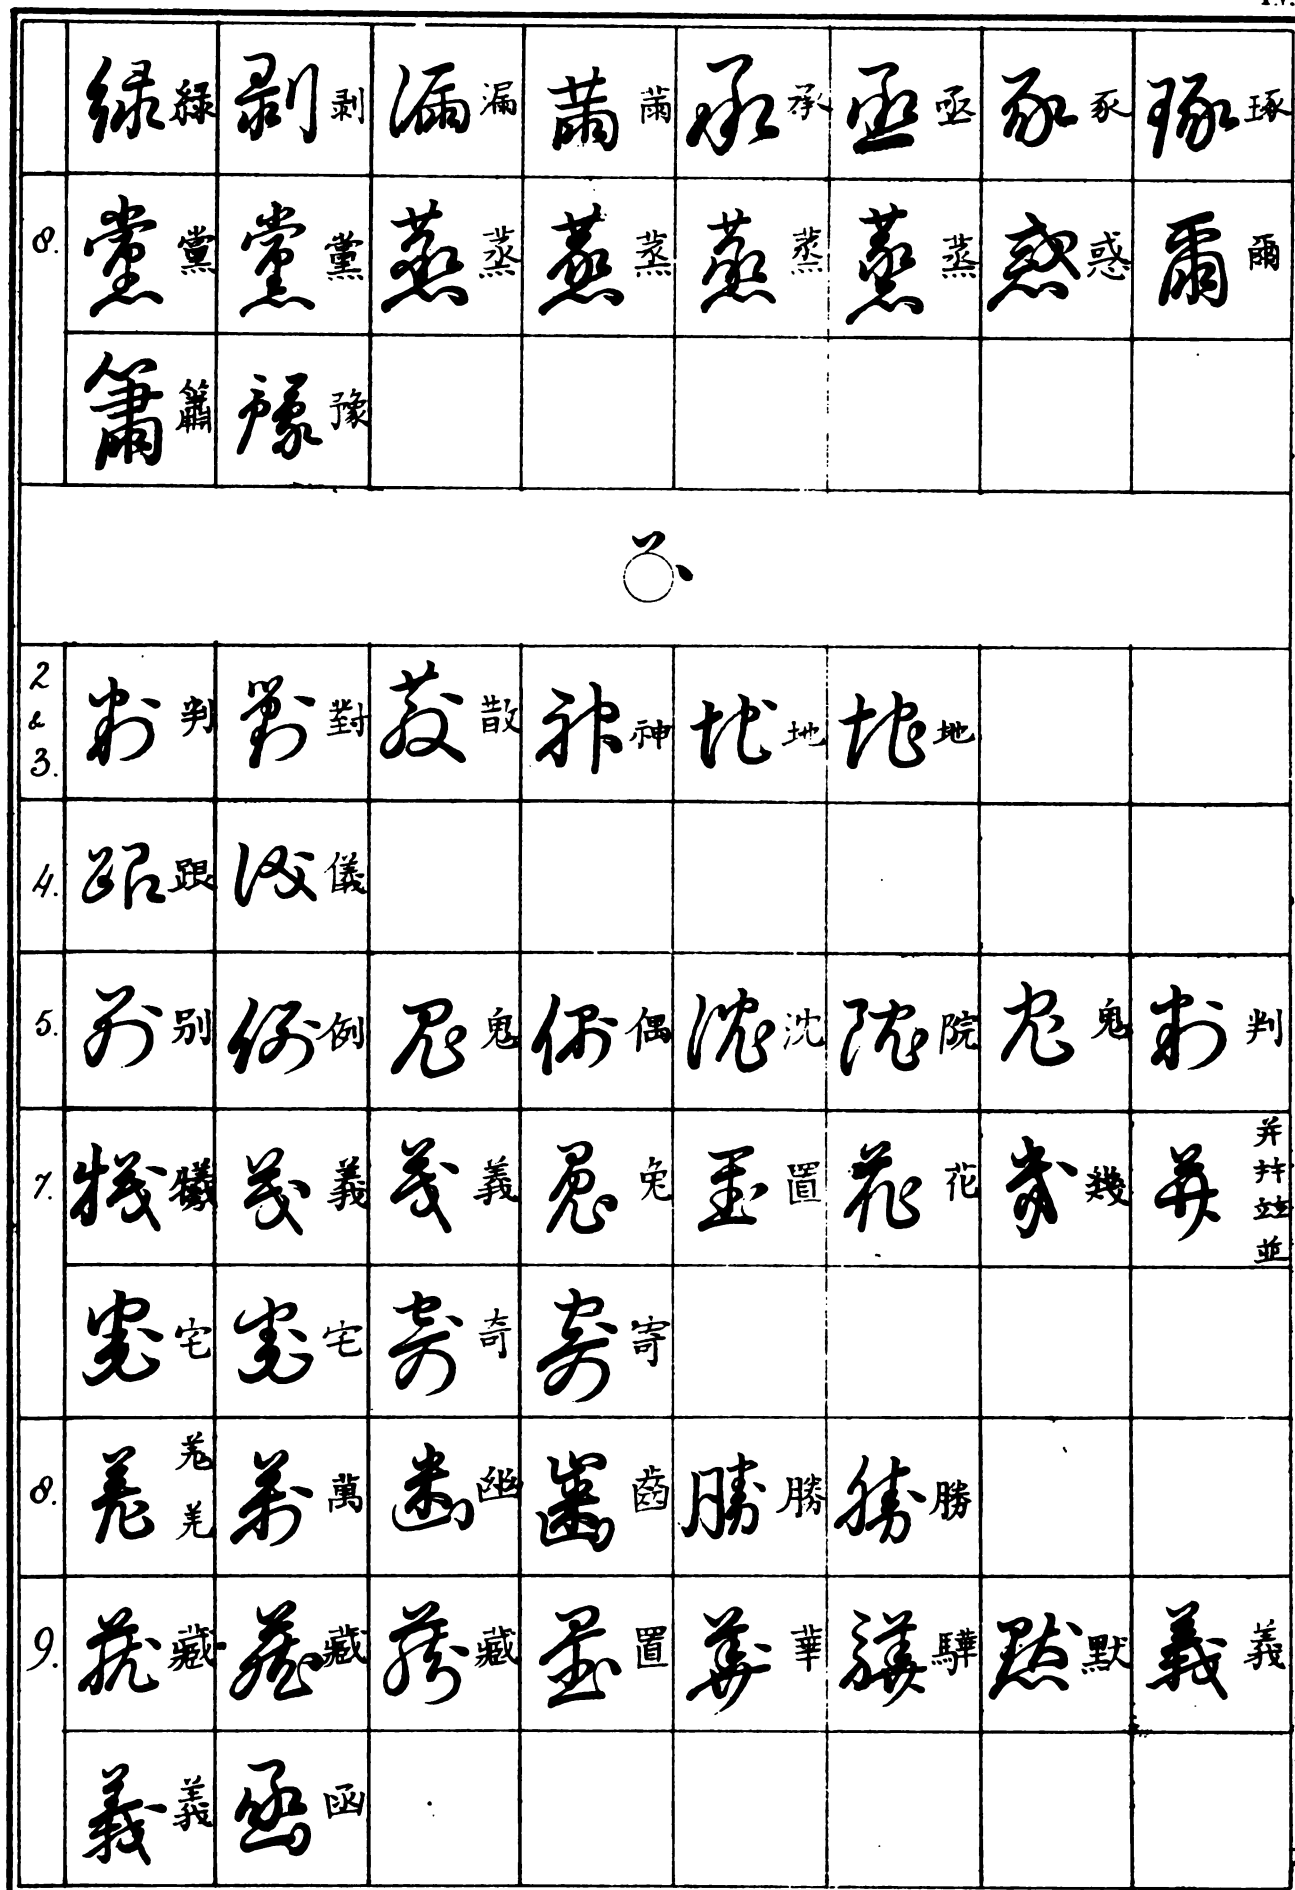 綠 剥 漏 𦬆 承 丞 豖 琢
8. 黨 黨 蒸 蒸 蒸 蒸 惑 爾
簫 豫
2 & 3. 判 對 散 神 地 地
4. 跟 儀
5. 别 例 鬼 偶 沈 院 鬼 判
7. 犧 義 義 兔 置 花 幾 并 竝 並
宅 宅 奇 寄
8. 羌 萬 幽 齒 勝 勝
9. 藏 藏 藏 置 華 驊 默 義
義 函